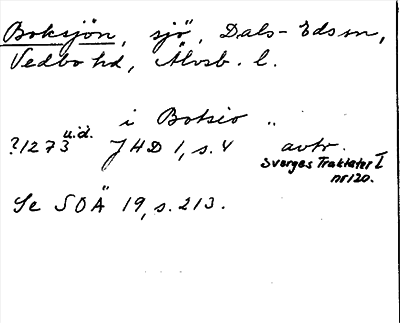 Boksjön, sjö, Dals-Eds sn,
Vedbo hd, Älvsb. l.
i Botsio „
?1273 u.d. JHD 1, s. 4 avtr.
Sverges Traktater I
nr 120.
Se SOÄ 19, s. 213.